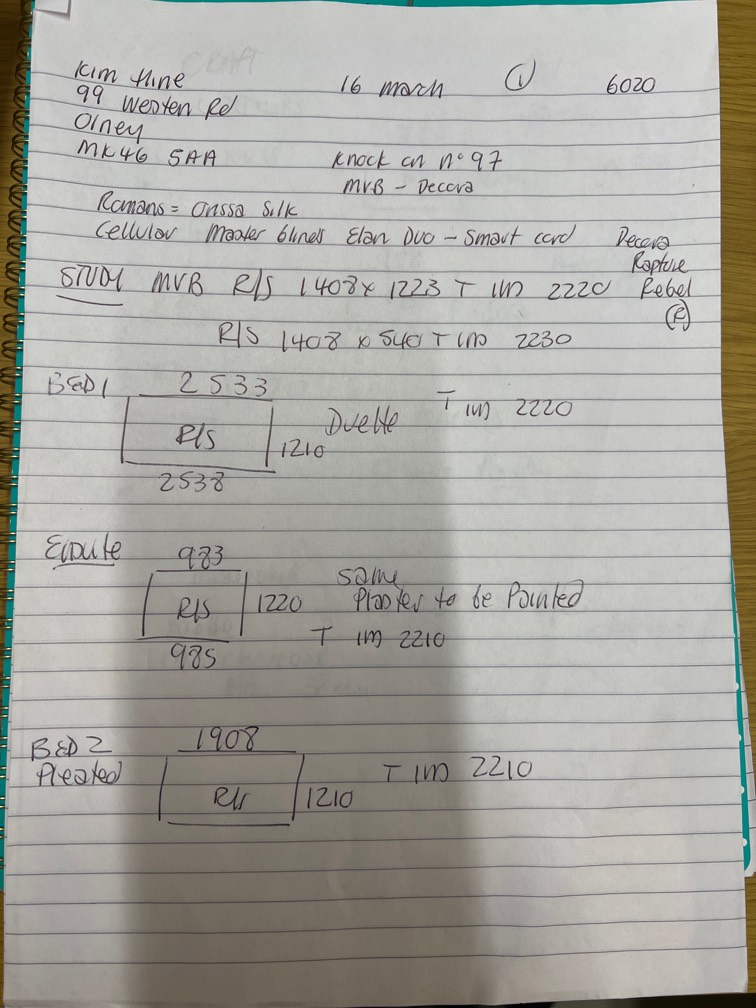 Kim Hine 16 march ① 6020
99 Westen Rd
Olney
MK46 5AA Knock on n° 97
MVB - Decora
Romans = Orissa Silk
Cellular Master blinds Elan Duo - Smart card Decora
Rapture
STUDY MVB R/S 1408 x 1223 T 1M 2220 Rebel
(R)
R/S 1408 x 540 T 1M 2230
BED 1 2533
R/S 1210 Duette T 1M 2220
2538
Ensuite 983
R/S 1220 same
Plaster to be Painted
985 T 1M 2210
BED 2 1908
Pleated R/S 1210 T 1M 2210